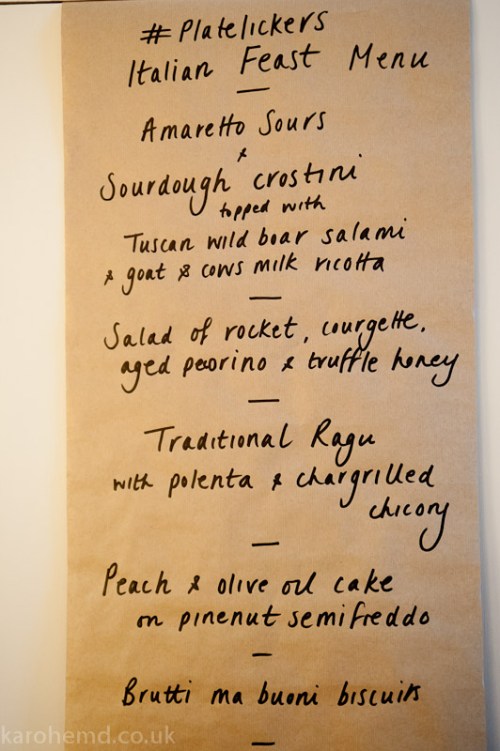 # Platelickers
Italian Feast Menu
—
Amaretto Sours
&
Sourdough crostini
topped with
Tuscan wild boar salami
& goat & cows milk ricotta
—
Salad of rocket, courgette,
aged pecorino & truffle honey
—
Traditional Ragu
with polenta & chargrilled
chicory
—
Peach & olive oil cake
on pinenut semifreddo
—
Brutti ma buoni biscuits
—
karohemd.co.uk